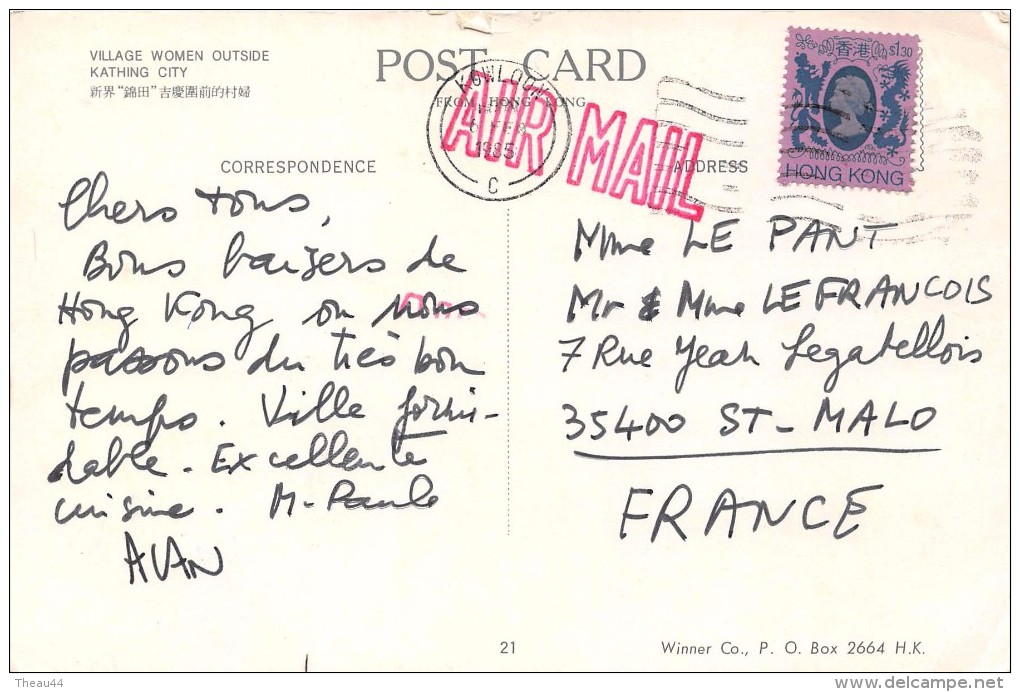 VILLAGE WOMEN OUTSIDE
KATHING CITY
新界“錦田”吉慶圍前的村婦
POST CARD
FROM HONG KONG
KOWLOON
1985
C
AIR MAIL
香港
$1.30
HONG KONG
CORRESPONDENCE
ADDRESS
Chers tous,
Bons baisers de
Hong Kong on nous
passons du très bon
temps. Ville formi-
dable. Excellente
cuisine. M-Paule
ALAN
Mme LE PANT
Mr & Mme LE FRANCOIS
7 Rue Jean Legatellois
35400 ST-MALO
FRANCE
21
Winner Co., P. O. Box 2664 H.K.
Theau44
delcampe.net